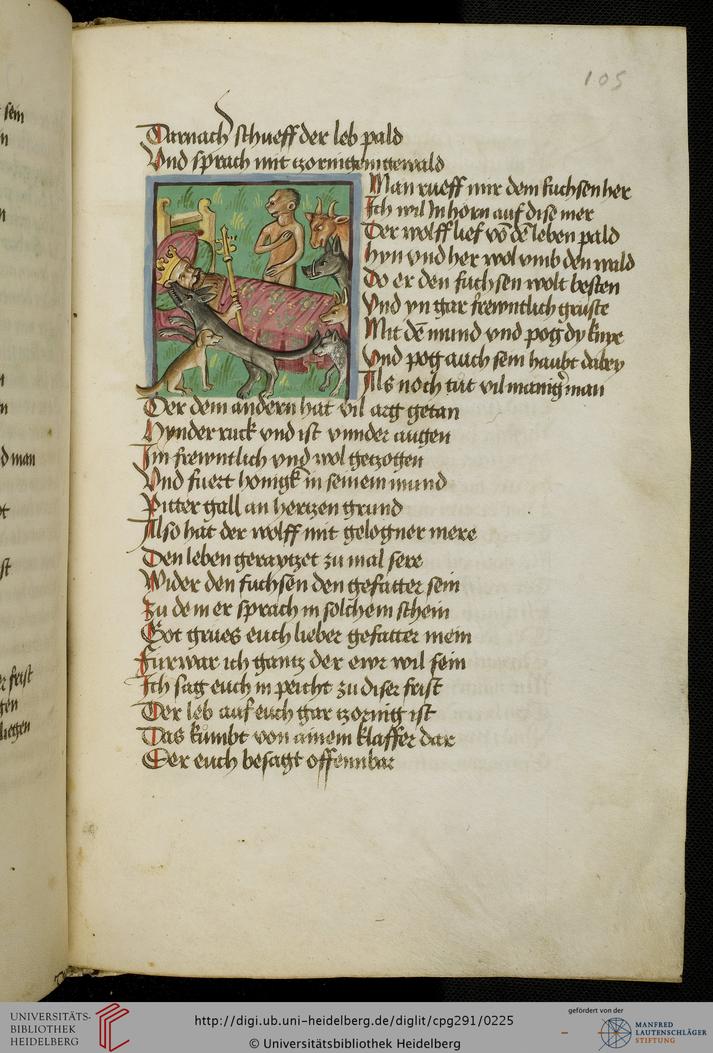 105
Darnach schueff der leb pald
Vnd sprach mit zornigem gewald
Man rueff mir dem fuchsen her
Ich wil In horn auf dise mer
Der wolff lief võ dẽ leben pald
Hyn vnd her wol vmb den wald
Do er den fuchsen wolt besten
Vnd yn gar frewntlich gruste
Mit dẽ mund vnd pog dy knye
Vnd pog auch sein haubt dabey
Als noch tut vil manig man
Der dem andern hat vil arg getan
Hynder ruck vnd ist vnnder augen
Im frewntlich vnd wol getzogen
Vnd fuert honigk in seinem mund
Pitter gall an hertzen grund
Also hat der wolff mit gelogner mere
Den leben geraytzet zu mal sere
Wider den fuchsen den gefatter sein
Zu dem er sprach in solchem schein
Got grues euch lieber gefatter mein
Furwar ich gantz der ewr wil sein
Ich sag euch in peicht zu diser frist
Der leb auf euch gar zornig ist
Das kůmbt von ainem klaffer dar
Der euch besagt offennbar
sein
d man
st
er frist
gen
liegen
UNIVERSITÄTS-
BIBLIOTHEK
HEIDELBERG
http://digi.ub.uni-heidelberg.de/diglit/cpg291/0225
© Universitätsbibliothek Heidelberg
gefördert von der
MANFRED
LAUTENSCHLÄGER
STIFTUNG